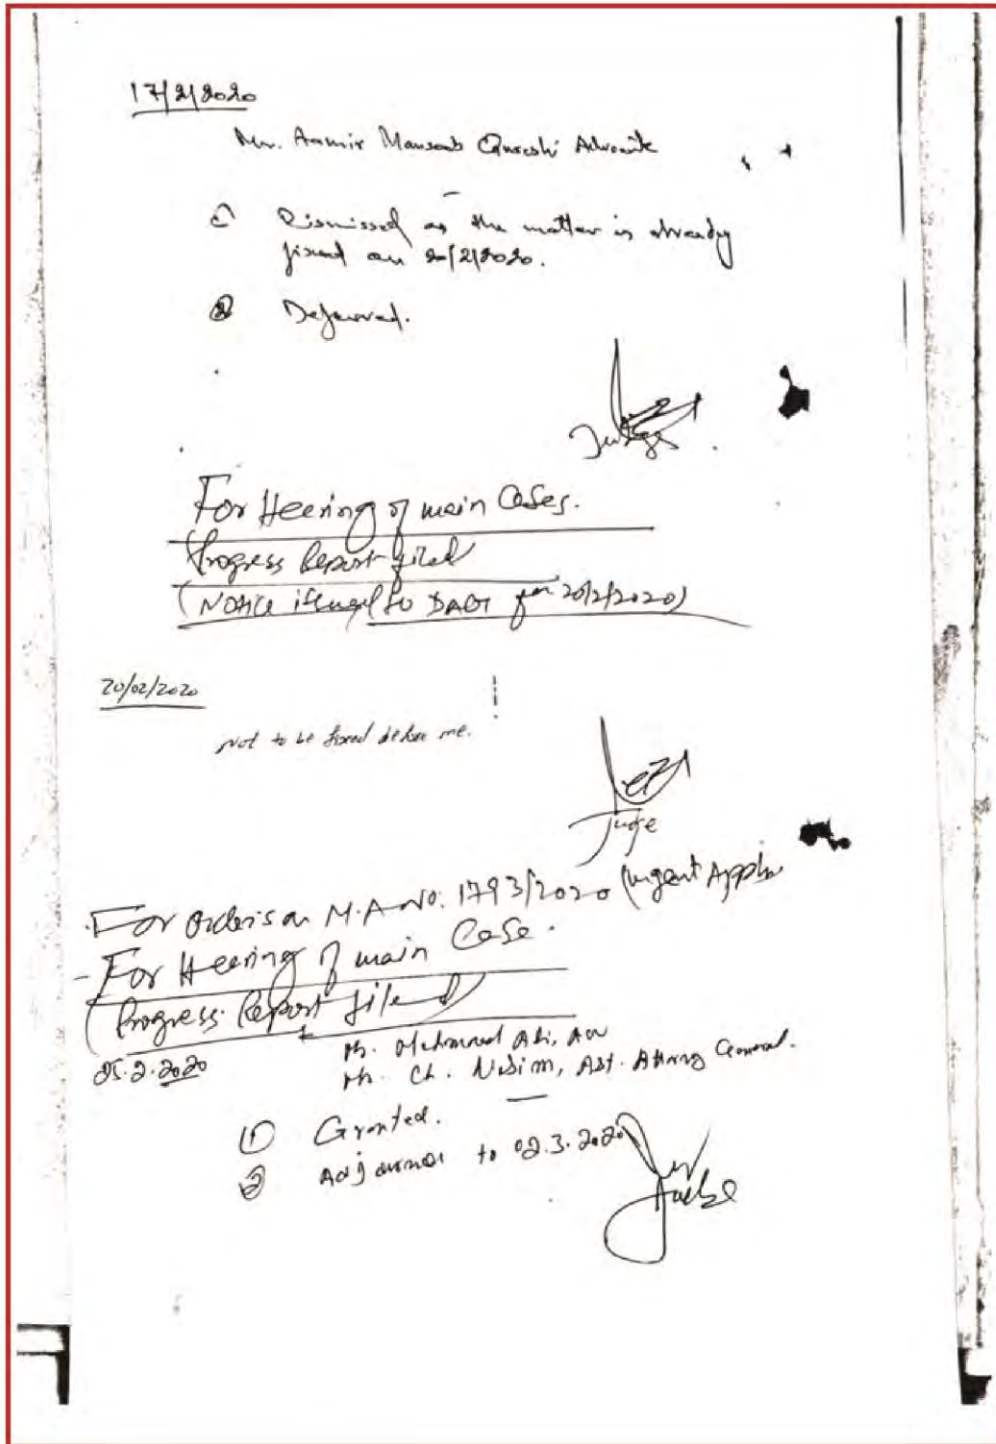 17/2/2020
Mr. Aamir Mansoob Qureshi Advocate
① Dismissed as the matter is already
fixed on 20/2/2020.
② Deferred.
Judge
For Heering of main Cases.
Progress Report filed
(Notice issued to DAG for 20/2/2020)
20/02/2020
Not to be fixed before me.
Judge
- For orders on M.A. No. 1793/2020 (urgent Appln
- For Heering of main Case.
(Progress Report filed)
25.2.2020
Mr. Mehmood Ali, Adv
Mr. Ch. Nasim, Ast. Attorny General.
① Granted.
② Adjourned to 02.3.2020
Judge